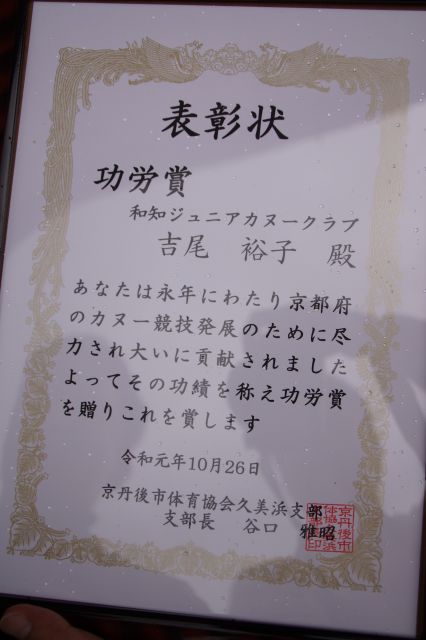 表彰状
功労賞
和知ジュニアカヌークラブ
吉尾 裕子 殿
あなたは永年にわたり京都府
のカヌー競技発展のために尽
力され大いに貢献されました
よってその功績を称え功労賞
を贈りこれを賞します
令和元年10月26日
京丹後市体育協会久美浜支部
支部長 谷口 雅昭